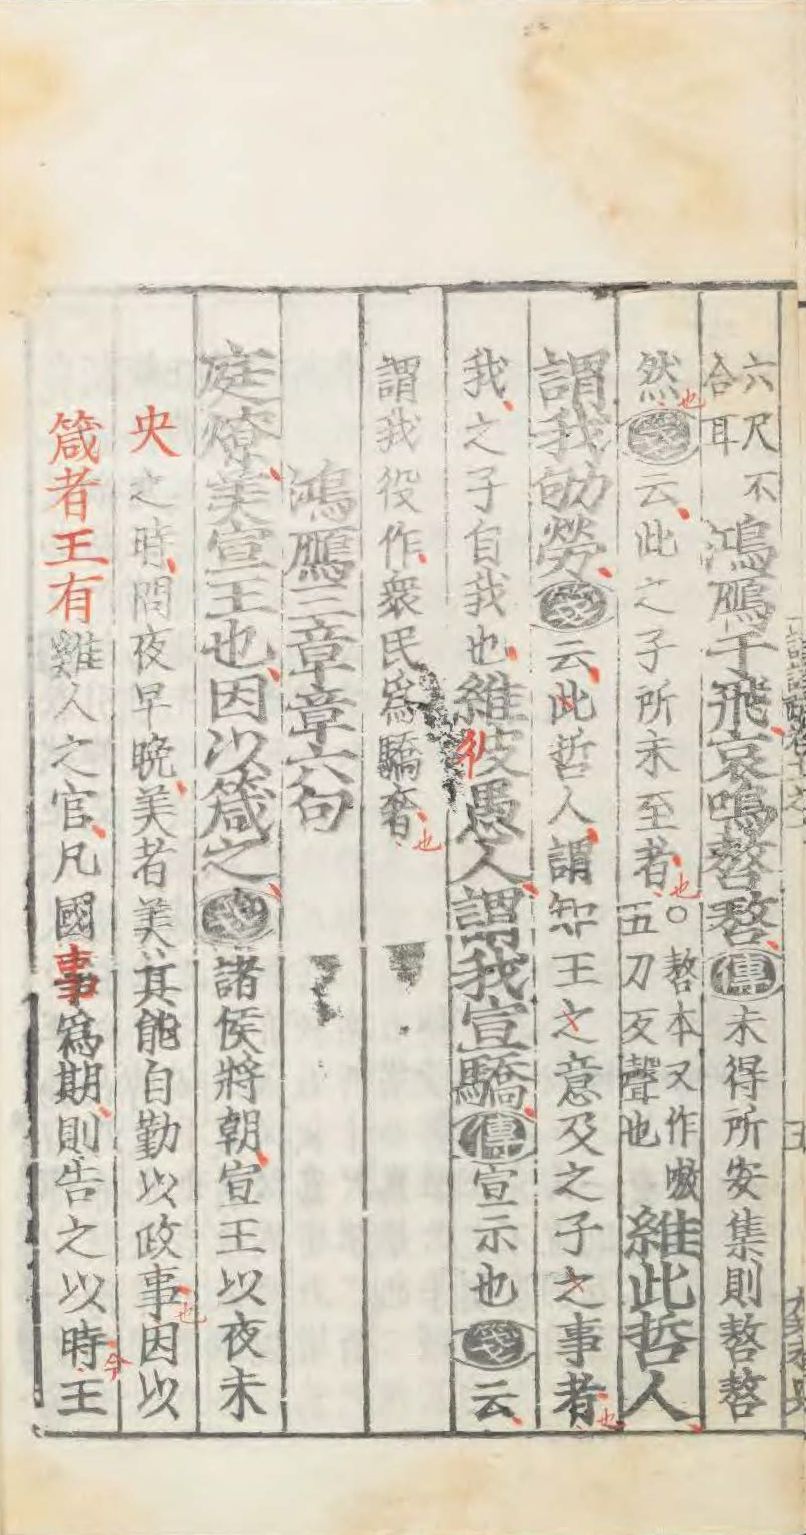 六尺不合耳鴻鴈于飛哀鳴嗸嗸傳未得所安集則嗸嗸
然也箋云此之子所未至者也○嗸本又作嗷五刀反聲也維此哲人
謂我劬勞箋云此哲人謂知王之意及之子之事者也
我之子自我也維彼愚人謂我宣驕傳宣示也箋云
謂我役作衆民爲驕奢也
鴻鴈三章章六句
庭燎美宣王也因以箴之箋諸侯將朝宣王以夜未
央之時問夜早晚美者美其能自勤以政事也因以
箴者王有雞人之官凡國事爲期則告之以時今王